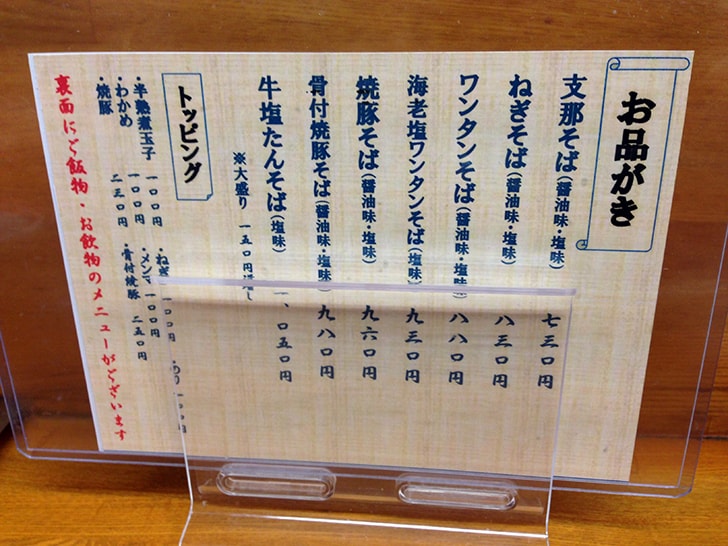 お品がき
支那そば(醤油味・塩味) 七三〇円
ねぎそば(醤油味・塩味) 八三〇円
ワンタンそば(醤油味・塩味) 八八〇円
海老塩ワンタンそば(塩味) 九三〇円
焼豚そば(醤油味・塩味) 九六〇円
骨付焼豚そば(醤油味・塩味) 九八〇円
牛塩たんそば(塩味) 一、〇五〇円
※大盛り 一五〇円増し
トッピング
・半熟煮玉子 一〇〇円
・わかめ 一〇〇円
・焼豚 二三〇円
・ねぎ 一〇〇円
・メンマ 一〇〇円
・骨付焼豚 二五〇円
裏面にご飯物・お飲物のメニューがございます